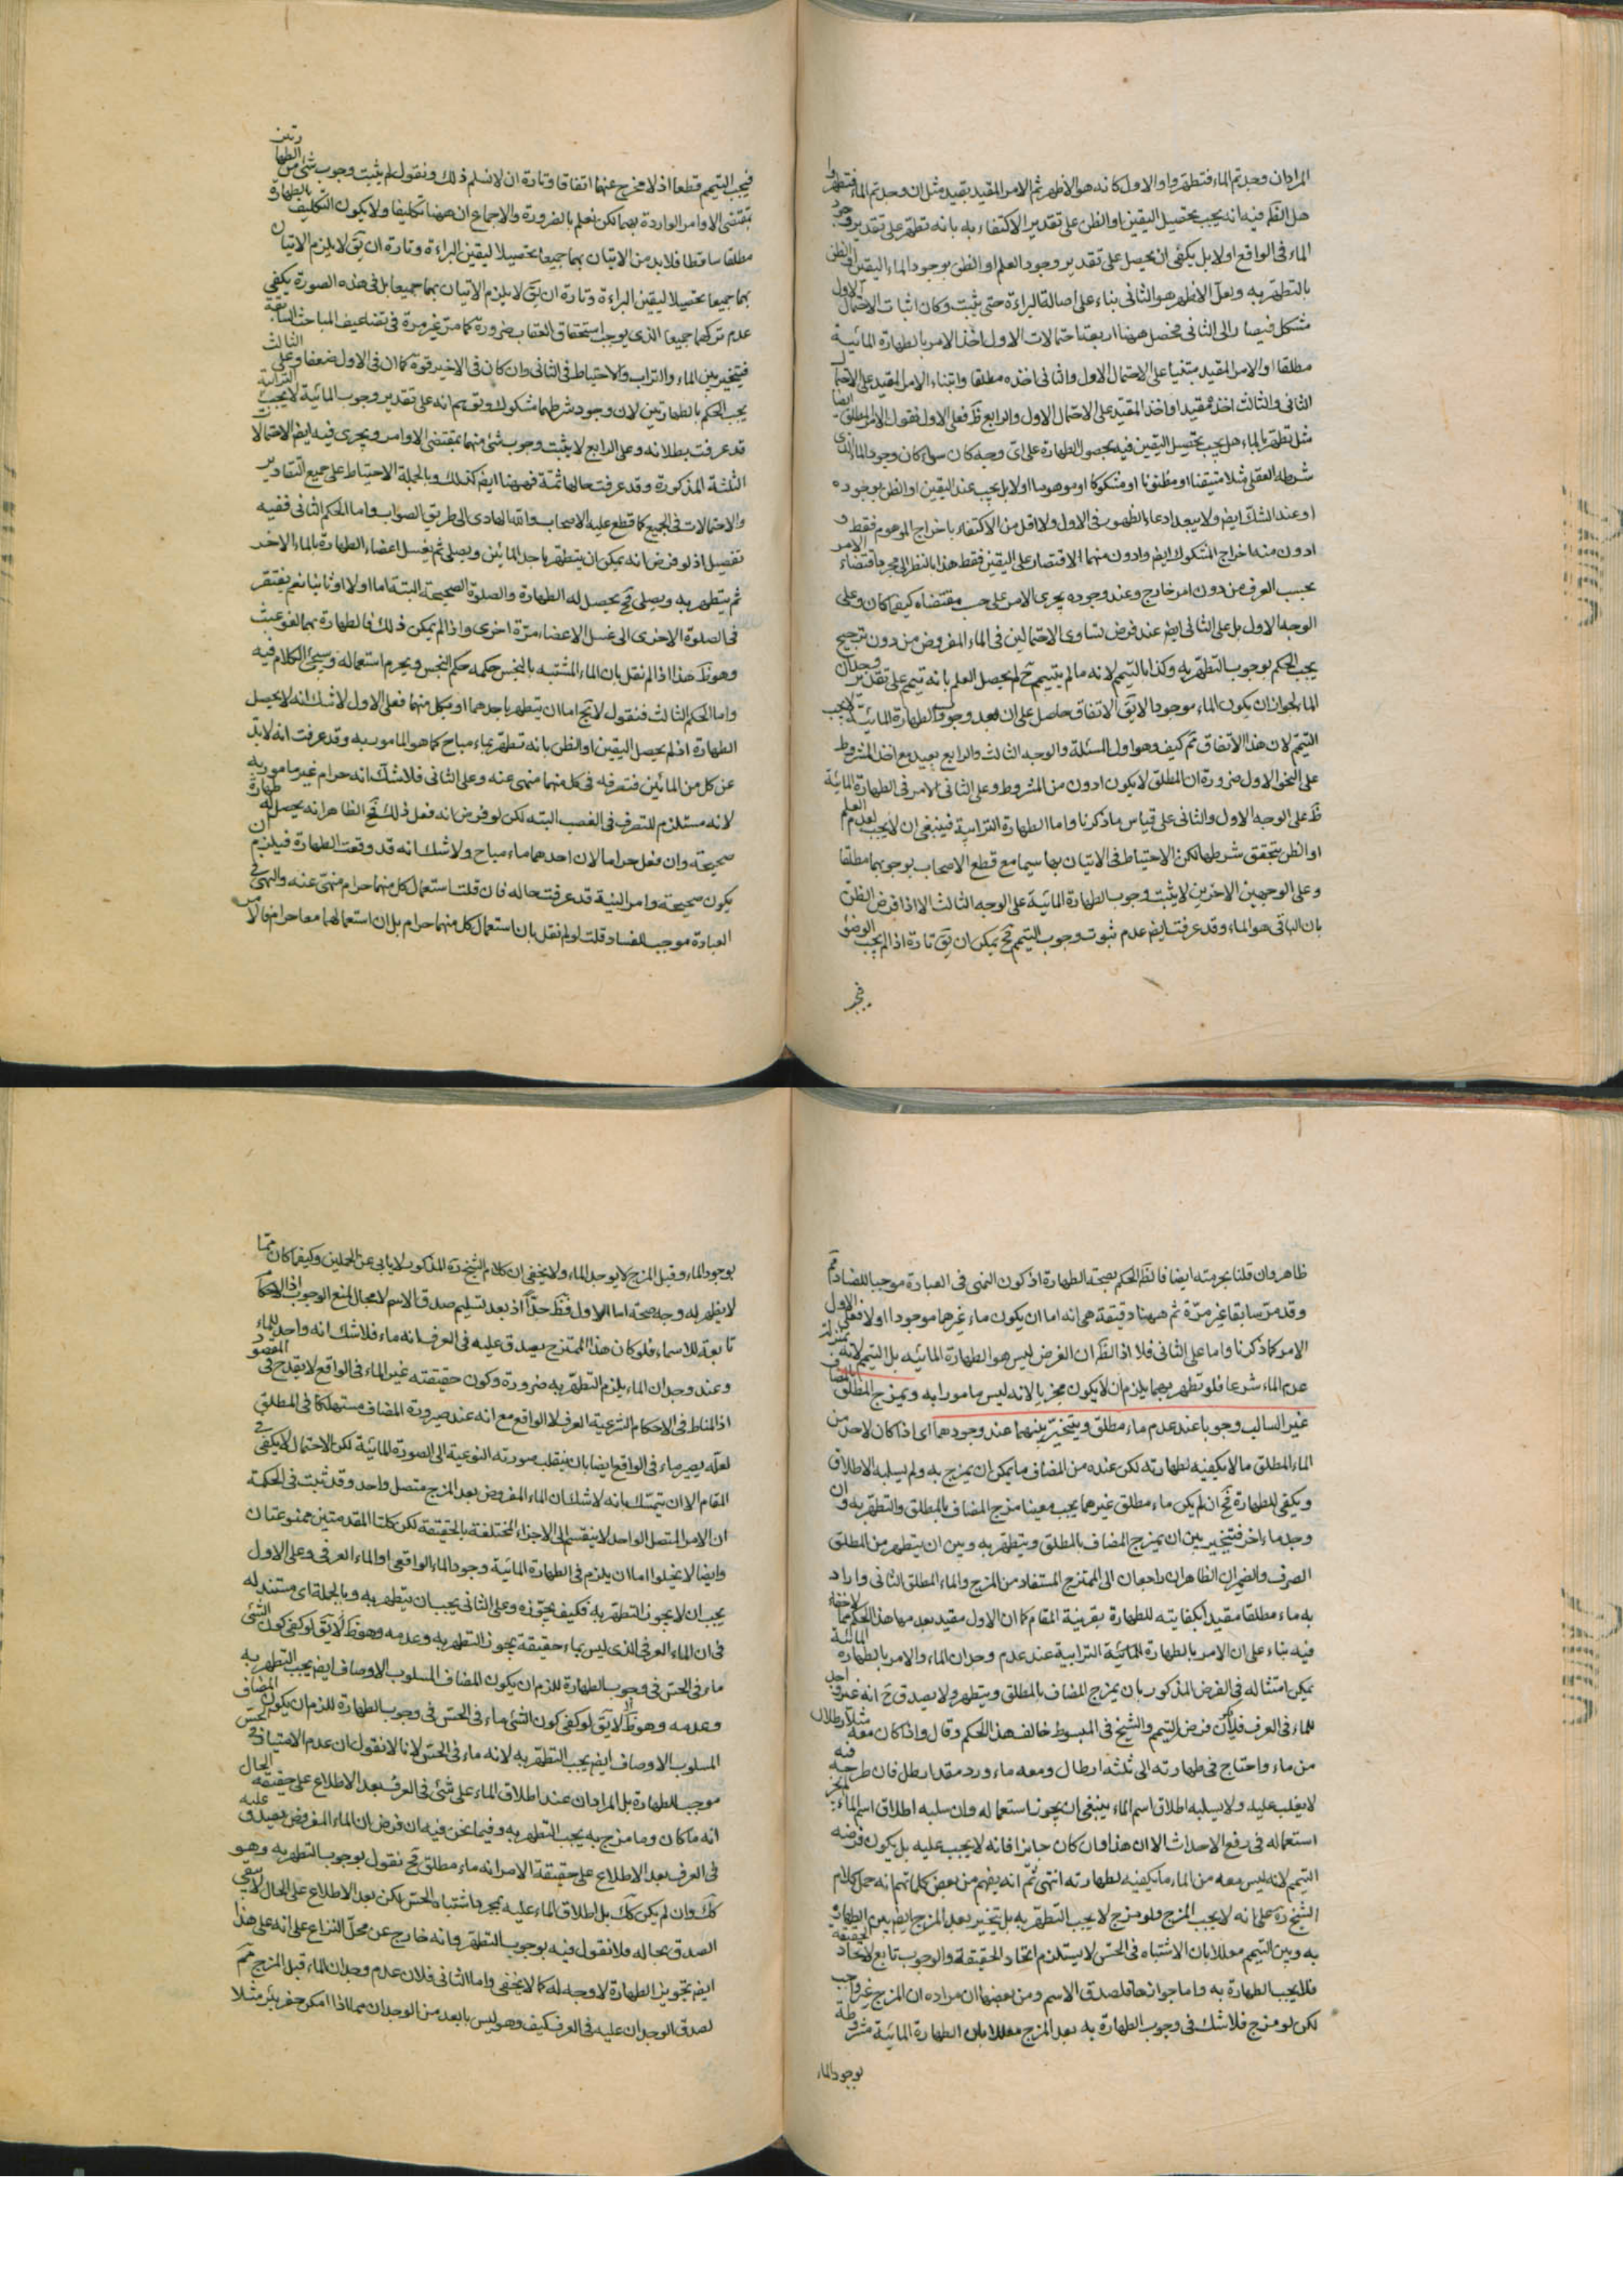 المراد ان وجدتم الماء فتطهروا والاول كانه هو الاظهر ثم الامر المقيد بقيد مثل ان وجدتم الماء فتطهروا
هل الظ فيه انه يجب تحصيل اليقين او الظن على تقدير الاكتفاء به بانه تطهر على تقدير وجود
الماء فى الواقع او لا بل يكفى ان يحصل على تقدير وجود العلم او الظن بوجود الماء اليقين او الظن
بالتطهر به ولعل الاظهر هو الثانى بناء على اصالة البراءة حتى يثبت وكان اثبات الاحتمال الاول
مشكل فيصار الى الثانى فحصل ههنا اربعة احتمالات الاول اخذ الامر بالطهارة المائية
مطلقا او الامر المقيد مبتنيا على الاحتمال الاول والثانى اخذه مطلقا وابتناء الامر المقيد على الاحتمال
الثانى والثالث اخذه مقيدا واخذ المقيد على الاحتمال الاول والرابع ظ فعلى الاول فنقول الامر المطلق ايضا
مثل تطهر بالماء هل يجب تحصيل اليقين فيه بحصول الطهارة على اى وجه كان سواء كان وجود الماء الذى
شرطه العقلى مثلا متيقنا او مظنونا او مشكوكا او موهوما او لا بل يجب عند اليقين او الظن بوجوده
او عند الشك ايض ولا يبعد ادعاء الظهور فى الاول ولا اقل من الاكتفاء باخراج الموهوم فقط و
ادون منه اخراج المشكوك ايض وادون منهما الاقتصار على اليقين فقط هذا بالنظر الى مجرد اقتضاء الامر
بحسب العرف من دون امر خارج وعند وجوده يجرى الامر على حسب مقتضاه كيفما كان وعلى
الوجه الاول بل على الثانى ايض عند فرض تساوى الاحتمالين فى الماء المفروض من دون ترجيح
يجب الحكم بوجوب التطهر به وكذا بالتيمم لانه ما لم يتيمم ح لم يحصل العلم بانه تيمم على تقدير وجدان
الماء لجواز ان يكون الماء موجودا لا يق الاتفاق حاصل على ان بعد وجوب الطهارة المائية لا يجب
التيمم لان هذا الاتفاق مم كيف وهو اول المسئلة والوجه الثالث والرابع بعيد مع اخذ المشروط
على النحو الاول ضرورة ان المطلق لا يكون ادون من المشروط وعلى الثانى الامر فى الطهارة المائية
ظ على الوجه الاول والثانى على قياس ما ذكرنا واما الطهارة الترابية فينبغى ان لا يجب لعدم العلم
او الظن بتحقق شرطها لكن الاحتياط فى الاتيان بها سيما مع قطع الاصحاب بوجوبهما مطلقا
وعلى الوجهين الاخرين لا يثبت وجوب الطهارة المائية على الوجه الثالث الا اذا فرض الظن
بان الباقى هو الماء وقد عرفت ايض عدم ثبوت وجوب التيمم فح يمكن ان يق تارة اذا لم يجب الوضوء
فيجب التيمم قطعا اذ لا مخرج عنهما اتفاقا وتارة ان لا نسلم ذلك ونقول لم يثبت وجوب شئ من الطهارتين
بمقتضى الاوامر الواردة بهما لكن نعلم بالضرورة والاجماع ان ههنا تكليفا ولا يكون التكليف بالطهارة
مطلقا ساقطا فلا بد من الاتيان بهما جميعا تحصيلا ليقين البراءة وتارة ان يق لا يلزم الاتيان
بهما جميعا تحصيلا ليقين البراءة وتارة ان يق لا يلزم الاتيان بهما جميعا بل فى هذه الصورة يكفى
عدم تركهما جميعا الذى يوجب استحقاق العقاب ضرورة كما مر غير مرة فى تضاعيف المباحث السابقة
فيتخير بين الماء والتراب والاحتياط فى الثانى وان كان فى الاخير قوة كما ان فى الاول ضعفا وعلى الثالث
يجب الحكم بالطهارتين لان وجود شرطهما مشكوك وتوهم انه على تقدير وجوب المائية لا يجب الترابية
قد عرفت بطلانه وعلى الرابع لا يثبت وجوب شئ منهما بمقتضى الاوامر ويجرى فيه ايض الاحتمالات
الثلثة المذكورة وقد عرفت حالها ثمة فههنا ايض كذلك وبالجملة الاحتياط على جميع التقادير
والاحتمالات فى الجمع كما قطع عليه الاصحاب والله الهادى الى طريق الصواب واما الحكم الثانى ففيه
تفصيل اذ لو فرض انه يمكن ان يتطهر باحد المائين ويصلى ثم يغسل اعضاء الطهارة بالماء الاخر
ثم يتطهر به ويصلى فح يحصل له الطهارة والصلوة الصحيحة البتة اما اولا او ثانيا نعم يفتقر
فى الصلوة الاخرى الى غسل الاعضاء مرة اخرى واذا لم يمكن ذلك فالطهارة بهما لغو عبث
وهو ظ هذا اذا لم نقل بان الماء المشتبه بالنجس حكمه حكم النجس ويحرم استعماله وسيجئ الكلام فيه
واما الحكم الثالث فنقول لا يخ اما ان يتطهر باحدهما او بكل منهما فعلى الاول لا شك انه لا يحصل
الطهارة اذ لم يحصل اليقين او الظن بانه تطهر بماء مباح كما هو المامور به وقد عرفت انه لا بد
عن كل من المائين فتصرفه فى كل منهما منهى عنه وعلى الثانى فلا شك انه حرام غير مامور به
لانه مستلزم للتصرف فى الغصب البتة لكن لو فرض انه فعل ذلك فح الظاهر انه يحصل له طهارة
صحيحة وان فعل حراما لان احدهما ماء مباح ولا شك انه قد وقعت الطهارة فيلزم ان
يكون صحيحة وامر النية قد عرفت حاله فان قلت استعمال كل منهما حرام منهى عنه والنهى فى
العبادة موجب للفساد قلت لو لم نقل بان استعمال كل منهما حرام بل ان استعمالهما معا حرام فالامر
ظاهر وان قلنا بحرمته ايضا فالظ الحكم بصحة الطهارة اذ كون النهى فى العبادة موجبا للفساد مم
وقد مر سابقا غير مرة ثم ههنا دقيقة هى انه اما ان يكون ماء غيرهما موجودا او لا فعلى الاول
الامر كما ذكرنا واما على الثانى فلا اذ الظ ان الفرض ليس هو الطهارة المائيه بل التيمم لانه بمنزلة
عدم الماء شرعا فلو تطهر بهما يلزم ان لا يكون مجزيا لانه ليس مامورا به ويمزج المطلق بالمضاف
غير السالب وجوبا عند عدم ماء مطلق ويتخير بينهما عند وجودهما اى اذا كان لاحد من
الماء المطلق ما لا يكفيه لطهارته لكن عنده من المضاف ما يمكن ان يمزج به ولم يسلبه الاطلاق
ويكفى للطهارة فح ان لم يكن ماء مطلق غيرهما يجب معينا مزج المضاف بالمطلق والتطهر به وان
وجد ماء اخر فيتخير بين ان يمزج المضاف بالمطلق ويتطهر به وبين ان يتطهر من المطلق
الصرف والضميران الظاهر ان راجعان الى الممتزج المستفاد من المزج والماء المطلق الثانى واراد
به ماء مطلقا مقيدا بكفايته للطهارة بقرينة المقام كما ان الاول مقيد بعدمها هذا الحكم مما لا خفاء
فيه بناء على ان الامر بالطهارة الترابية عند عدم وجدان الماء والامر بالطهارة المائية
يمكن امتثاله فى الفرض المذكور بان يمزج المضاف بالمطلق ويتطهر ولا يصدق ح انه غير واجد
للماء فى العرف فلا يكون فرض التيمم والشيخ فى المبسوط خالف هذا الحكم وقال واذا كان معه مثلا رطلان
من ماء واحتاج فى طهارته الى ثلثة ارطال ومعه ماء ورد مقدار رطل فان طرحه فيه
لا يغلب عليه ولا يسلبه اطلاق اسم الماء ينبغى ان يجوز استعماله وان سلبه اطلاق اسم الماء لم يجز
استعماله فى رفع الاحداث الا ان هذا وان كان جايزا فانه لا يجب عليه بل يكون فرضه
التيمم لانه ليس معه من الماء ما يكفيه لطهارته انتهى ثم انه يفهم من بعض كلماتهم انه حمل كلام
الشيخ ره على انه لا يجب المزج ولو مزج لا يجب التطهر به بل يتخير بعد المزج ايض بين الطهارة
به وبين التيمم معللا بان الاشتباه فى الحس لا يستلزم اتحاد الحقيقة والوجوب تابع لاتحاد الحقيقة
فلا يجب الطهارة به واما جوازها فلصدق الاسم ومن بعضها ان مراده ان المزج غير واجب
لكن لو مزج فلا شك فى وجوب الطهارة به بعد المزج معللا بان الطهارة المائية مشروطة
بوجود الماء
بوجود الماء وقبل المزج لا يوجد الماء ولا يخفى ان كلام الشيخ ره المذكور لا يابى عن الحملين وكيفما كان مما
لا يظهر له وجه صحة اما الاول فظ جدا اذ بعد تسليم صدق الاسم لا مجال لمنع الوجوب اذ الاحكام
تابعة للاسماء فلو كان هذا الممتزج يصدق عليه فى العرف انه ماء فلا شك انه واجد للماء
وعند وجدان الماء يلزم التطهر به ضرورة وكون حقيقته غير الماء فى الواقع لا يقدح فى المقصود
اذ المناط فى الاحكام الشرعية العرف لا الواقع مع انه عند صيرورة المضاف مستهلكا فى المطلق
لعله يصير ماء فى الواقع ايضا بان ينقلب صورته النوعية الى الصورة المائية لكن الاحتمال لا يكفى فى
المقام الا ان يتمسك بانه لا شك ان الماء المفروض بعد المزج متصل واحد وقد ثبت فى الحكمة
ان الامر المتصل الواحد لا ينقسم الى الاجزاء المختلفة بالحقيقة لكن كلتا المقدمتين ممنوعتان
وايضا لا يخلوا اما ان يلزم فى الطهارة المائية وجود الماء الواقعى او الماء العرفى وعلى الاول
يجب ان لا يجوز التطهر به فكيف يجوزه وعلى الثانى يجب ان يتطهر به وبالجملة اى مستند له
فى ان الماء العرفى الذى ليس بماء حقيقة يجوز التطهر به وعدمه وهو ظ لا يق لو كفى كون الشئ
ماء فى الحس فى وجوب الطهارة للزم ان يكون المضاف المسلوب الاوصاف ايض يجب التطهر به
وعدمه وهو ظ لا يق لو كفى كون الشئ ماء فى الحس فى وجوب الطهارة للزم ان يكون المضاف
المسلوب الاوصاف ايض يجب التطهر به لانه ماء فى الحس لانا لا نقول ان عدم الامتياز فى الحس
موجب للطهارة بل المراد ان عند اطلاق الماء على شئ فى العرف بعد الاطلاع على حقيقة الحال
انه ما كان وما مزج به يجب التطهر به وفيما نحن فيه ان فرض ان الماء المفروض يصدق عليه
فى العرف بعد الاطلاع على حقيقة الامر انه ماء مطلق فح نقول بوجوب التطهر به وهو
كك وان لم يكن كك بل اطلاق الماء عليه بمجرد اشتباه الحس لكن بعد الاطلاع على الحال لا يبقى
الصدق بحاله فلا نقول فيه بوجوب التطهر وانه خارج عن محل النزاع على انه على هذا
ايض تجويز الطهارة لا وجه له كما لا يخفى واما الثانى فلان عدم وجدان الماء قبل المزج مم
لصدق الوجدان عليه فى العرف كيف وهو ليس بابعد من الوجدان مما اذا امكن حفر بئر مثلا